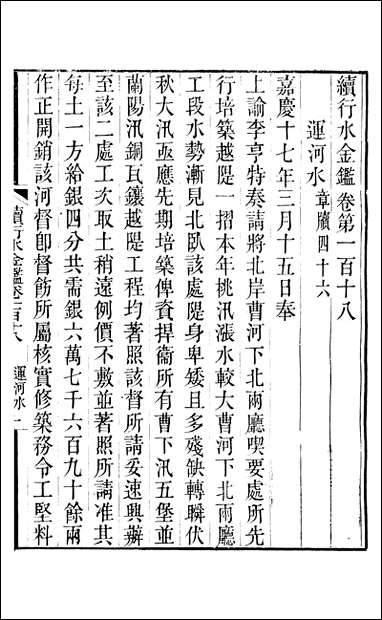 續行水金鑑卷第一百十八
運河水章牘四十六
嘉慶十七年三月十五日奉
上諭李亨特奏請將北岸曹河下北兩廳喫要處所先
行培築越隄一摺本年桃汛漲水較大曹河下北兩廳
工段水勢漸見北臥該處隄身卑矮且多殘缺轉瞬伏
秋大汛亟應先期培築俾資捍衞所有曹下汛五堡並
蘭陽汛銅瓦鑲越隄工程均著照該督所請妥速興辦
至該二處工次取土稍遠例價不敷並著照所請准其
每土一方給銀四分共需銀六萬七千六百九十餘兩
作正開銷該河督卽督飭所屬核實修築務令工堅料
續行水金鑑卷一百十八 運河水 一